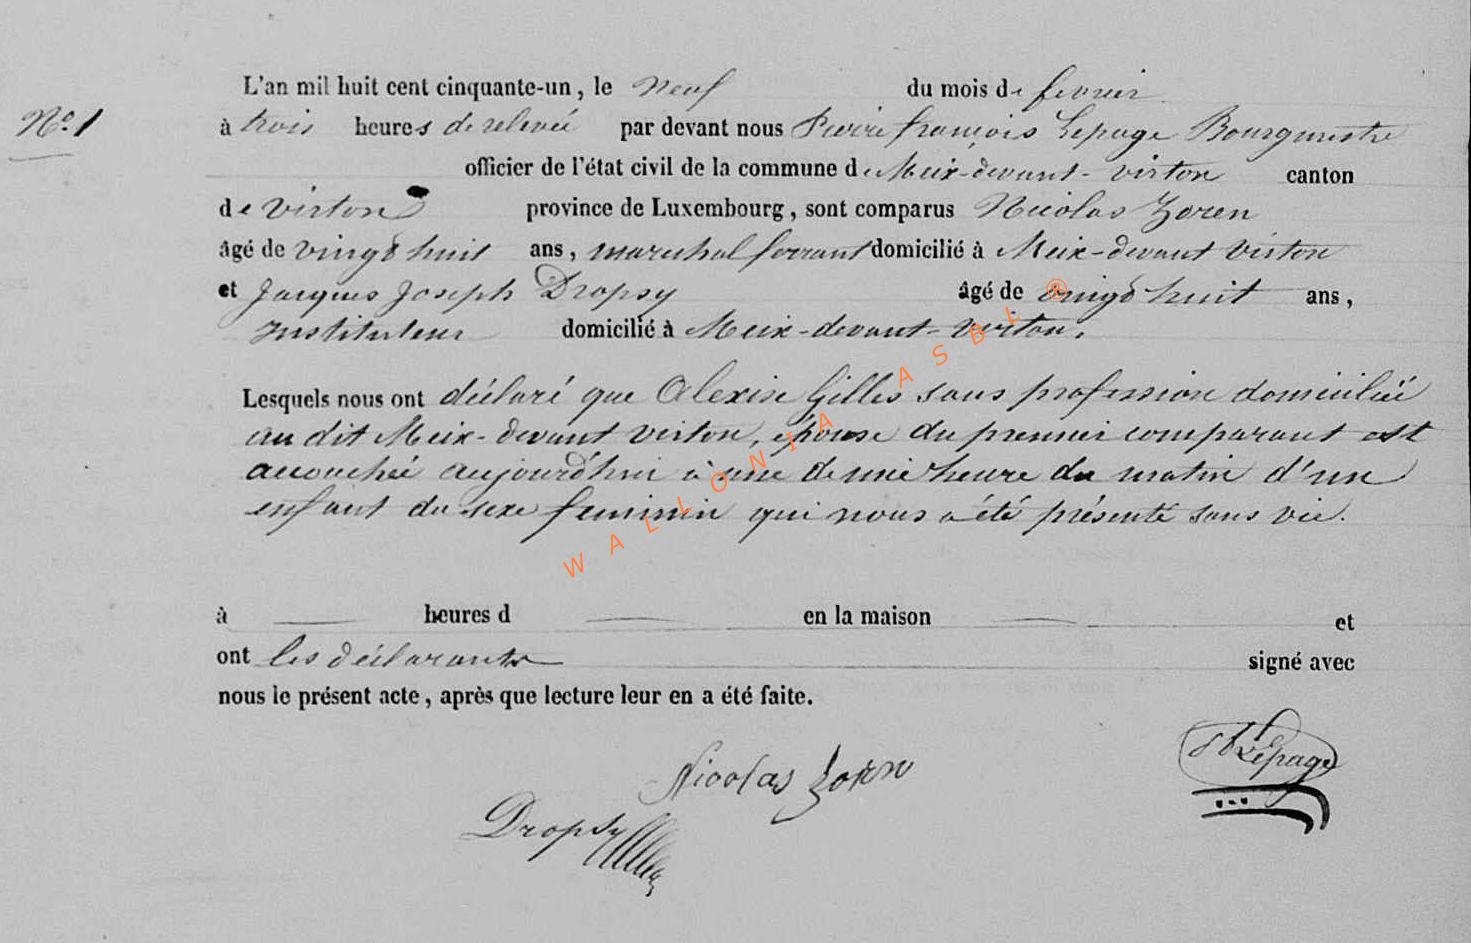 L'an mil huit cent cinquante-un, le neuf du mois de fevrier
N° 1
à trois heures de relevée par devant nous Pierre françois Lepage Bourgmestre
officier de l'état civil de la commune de Meix-devant-virton canton
de virton province de Luxembourg, sont comparus Nicolas Zoren
âgé de vingt huit ans, marechal ferrant domicilié à Meix-devant virton
et Jacques Joseph Dropsy âgé de vingt huit ans,
Instituteur domicilié à Meix-devant-virton.
Lesquels nous ont déclaré que Alexise Gilles sans profession domiciliée
au dit Meix-devant virton, épouse du premier comparant est
accouchée aujourd'hui à une demie heure du matin d'un
enfant du sexe feminin qui nous a été présenté sans vie.
WALLONIA ASBL ®
à heures d en la maison et
ont les déclarants signé avec
nous le présent acte, après que lecture leur en a été faite.
Nicolas Zorn
Lepage
Dropsy